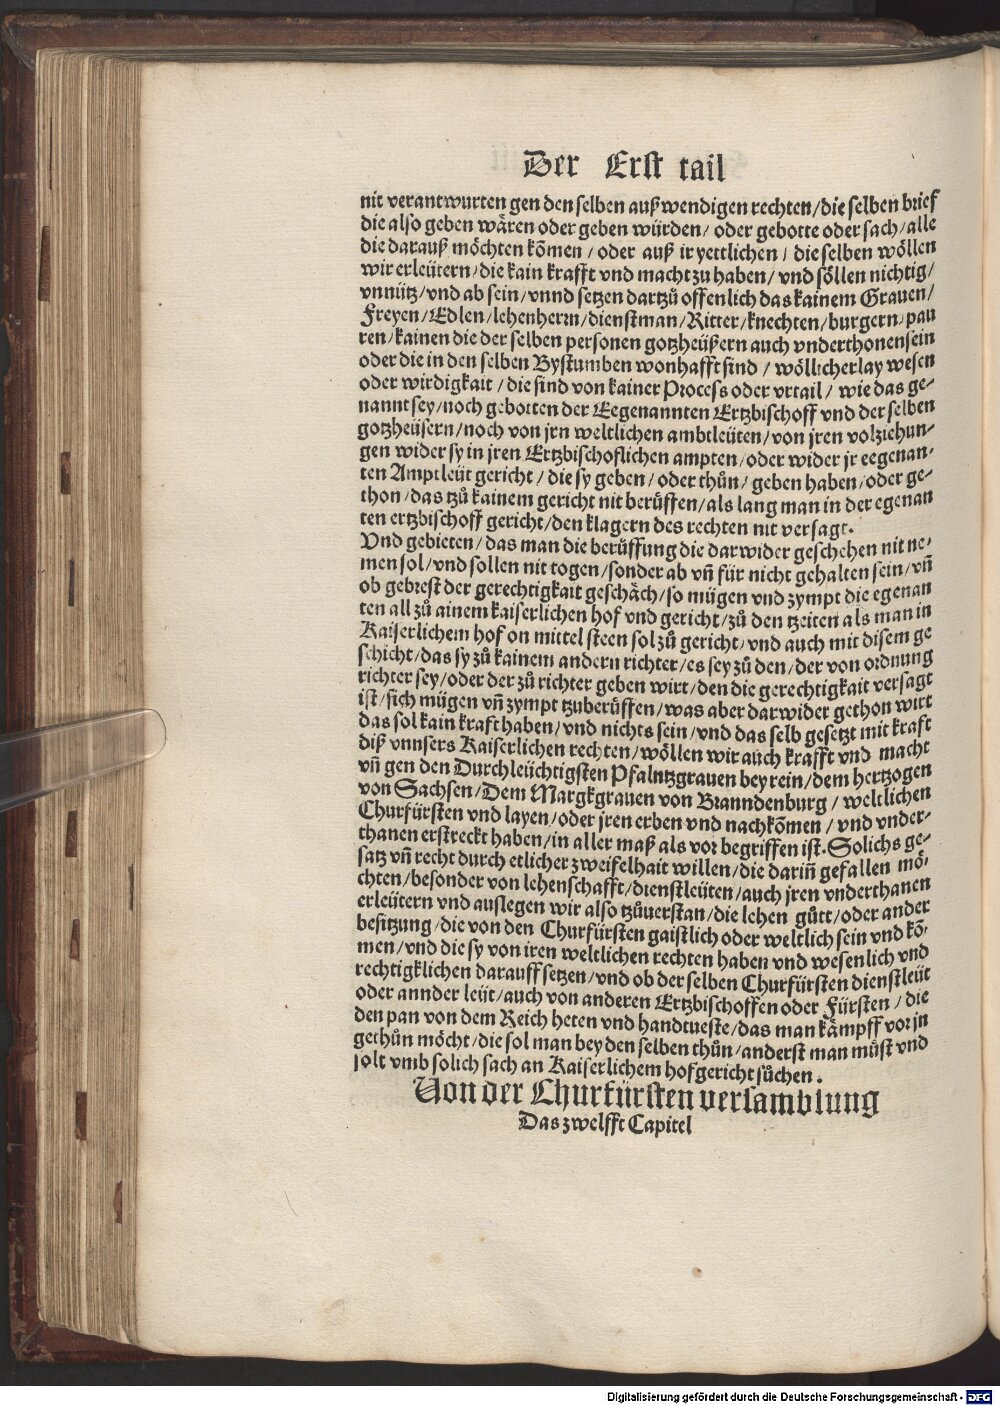 Der Erst tail
nit verantwurten gen den selben außwendigen rechten/die selben brief
die also geben wären oder geben würden/ oder gebotte oder sach/alle
die darauß möchten kōmen/ oder auß ir yettlichen/ die selben wöllen
wir erleütern/die kain krafft vnd macht zu haben/ vnd söllen nichtig/
vnnütz/vnd ab sein/vnnd setzen dartzů offenlich das kainem Grauen/
Freyen/Edlen/lehenherrn/dienstman/Ritter/knechten/burgern/pau
ren/kainen die der selben personen gotzheüßern auch vnderthonen sein
oder die in den selben Bystumben wonhafft sind/ wöllicherlay wesen
oder wirdigkait/die sind von kainer Process oder vrtail/ wie das ge-
nannt sey/noch gebotten der Eegenannten Ertzbischoff vnd der selben
gotzheüsern/noch von jrn weltlichen ambtleüten/von jren volziehun-
gen wider sy in jren Ertzbischoflichen ampten/oder wider jr eegenan-
ten Amptleüt gericht/die sy geben/oder thůn/geben haben/oder ge-
thon/das tzů kainem gericht nit berüffen/als lang man in der egenan
ten ertzbischoff gericht/den klagern des rechten nit versagt.
Vnd gebieten/das man die berüffung die darwider geschehen nit ne-
men sol/vnd sollen nit togen/sonder ab vn̄ für nicht gehalten sein/vn̄
ob gebrest der gerechtigkait geschäch/so mügen vnd zympt die egenan
ten all zů ainem kaiserlichen hof vnd gericht/zů den tzeiten als man in
Kaiserlichem hof on mittel steen sol zů gericht/vnd auch mit disem ge
schicht/das sy zů kainem andern richter/es sey zů den/der von ordnung
richter sey/oder der zů richter geben wirt/den die gerechtigkait versagt
ist/sich mügen vn̄ zympt tzuberüffen/was aber darwider gethon wirt
das sol kain kraft haben/vnd nichts sein/vnd das selb gesetzt mit kraft
diß vnnsers Kaiserlichen rechten/wöllen wir auch krafft vnd macht
vn̄ gen den Durchleüchtigsten Pfalntzgrauen bey rein/dem hertzogen
von Sachsen/Dem Margkgrauen von Branndenburg/ weltlichen
Churfürsten vnd layen/oder jren erben vnd nachkōmen/ vnd vnder-
thanen erstreckt haben/in aller maß als vor begriffen ist. Solichs ge-
satz vn̄ recht durch etlicher zweifelhait willen/die darin̄ gefallen mö-
chten/besonder von lehenschafft/dienstleüten/auch jren vnderthanen
erleütern vnd auslegen wir also tzůuerstan/die lehen gůtt/oder ander
besitzung/die von den Churfürsten gaistlich oder weltlich sein vnd kō-
men/vnd die sy von iren weltlichen rechten haben vnd wesenlich vnd
rechtigklichen darauff setzen/vnd ob der selben Churfürsten dienstleüt
oder annder leüt/auch von anderen Ertzbischoffen oder Fürsten/die
den pan von dem Reich heten vnd handtueste/das man kämpff vor jn
gethůn möcht/die sol man bey den selben thůn/anderst man můst vnd
solt vmb solich sach an Kaiserlichem hofgericht sůchen.
Von der Churfürsten versamblung
Das zwelfft Capitel
Digitalisierung gefördert durch die Deutsche Forschungsgemeinschaft - DFG